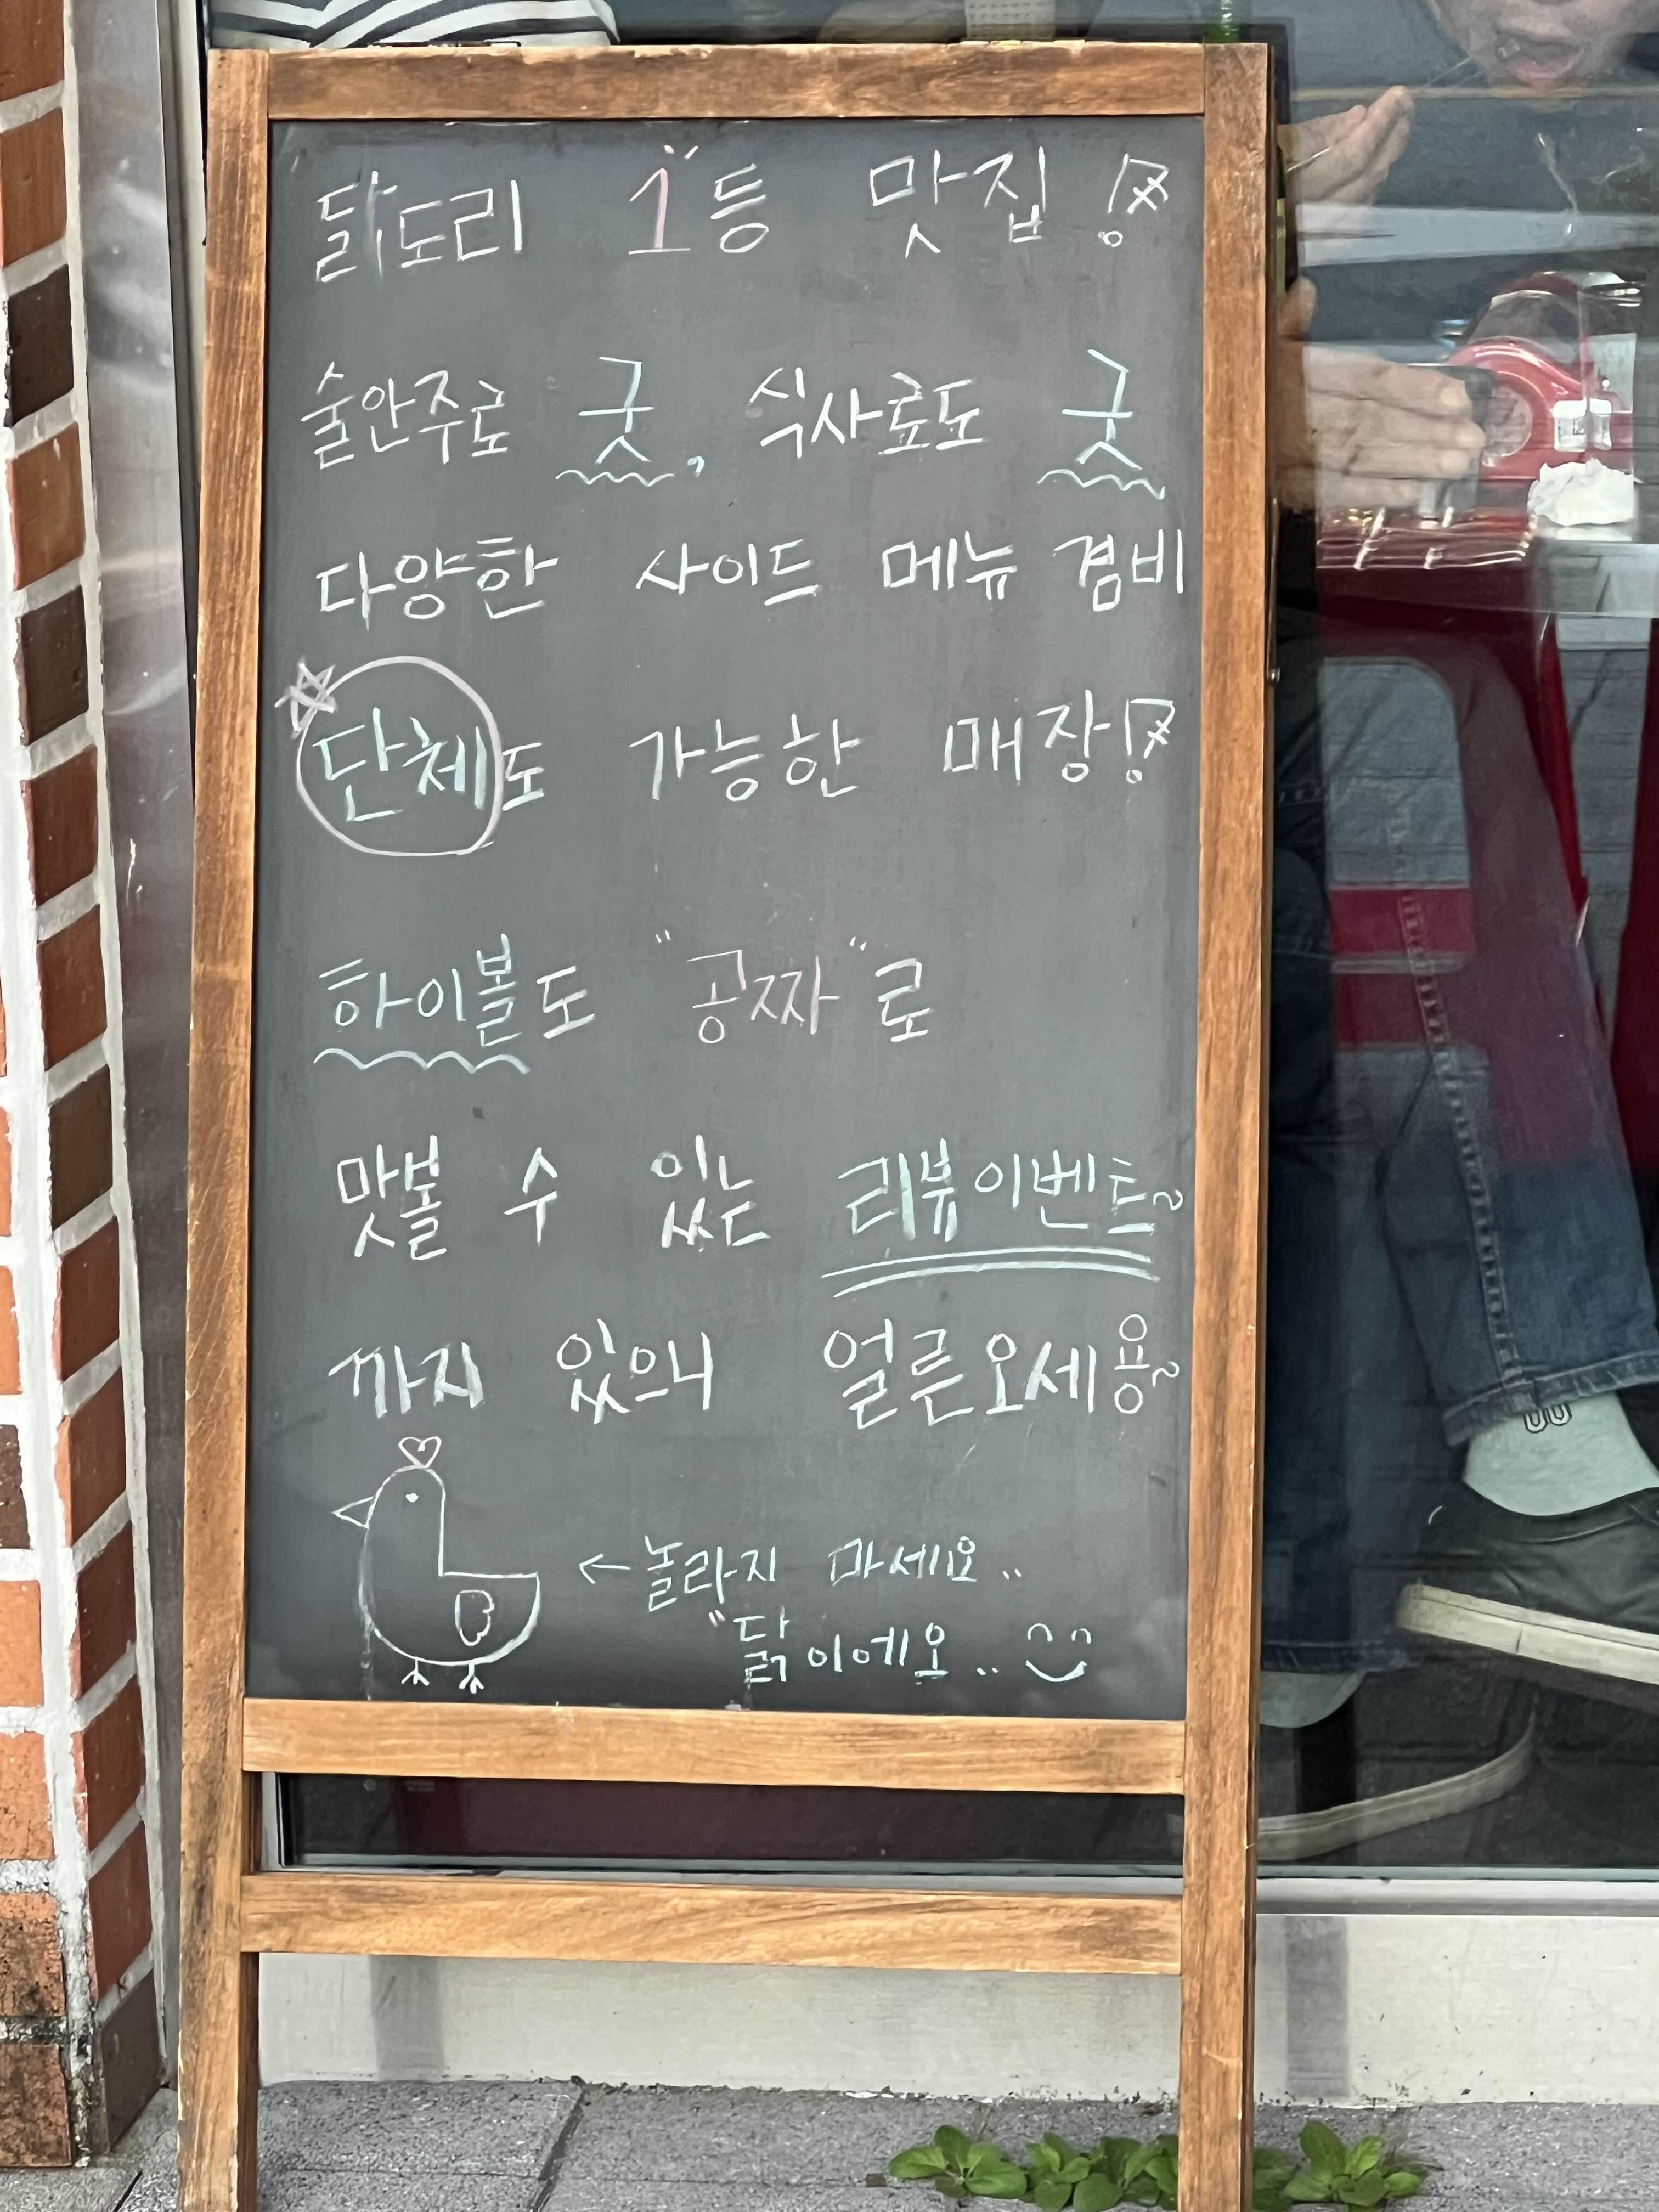 닭도리 1등 맛집!
술안주로 굿, 식사료도 굿
다양한 사이드 메뉴 겸비
단체도 가능한 매장!
하이볼도 "공짜"로
맛볼 수 있는 리뷰이벤트~
까지 있으니 얼른오세용~
← 놀라지 마세요..
"닭이에요..